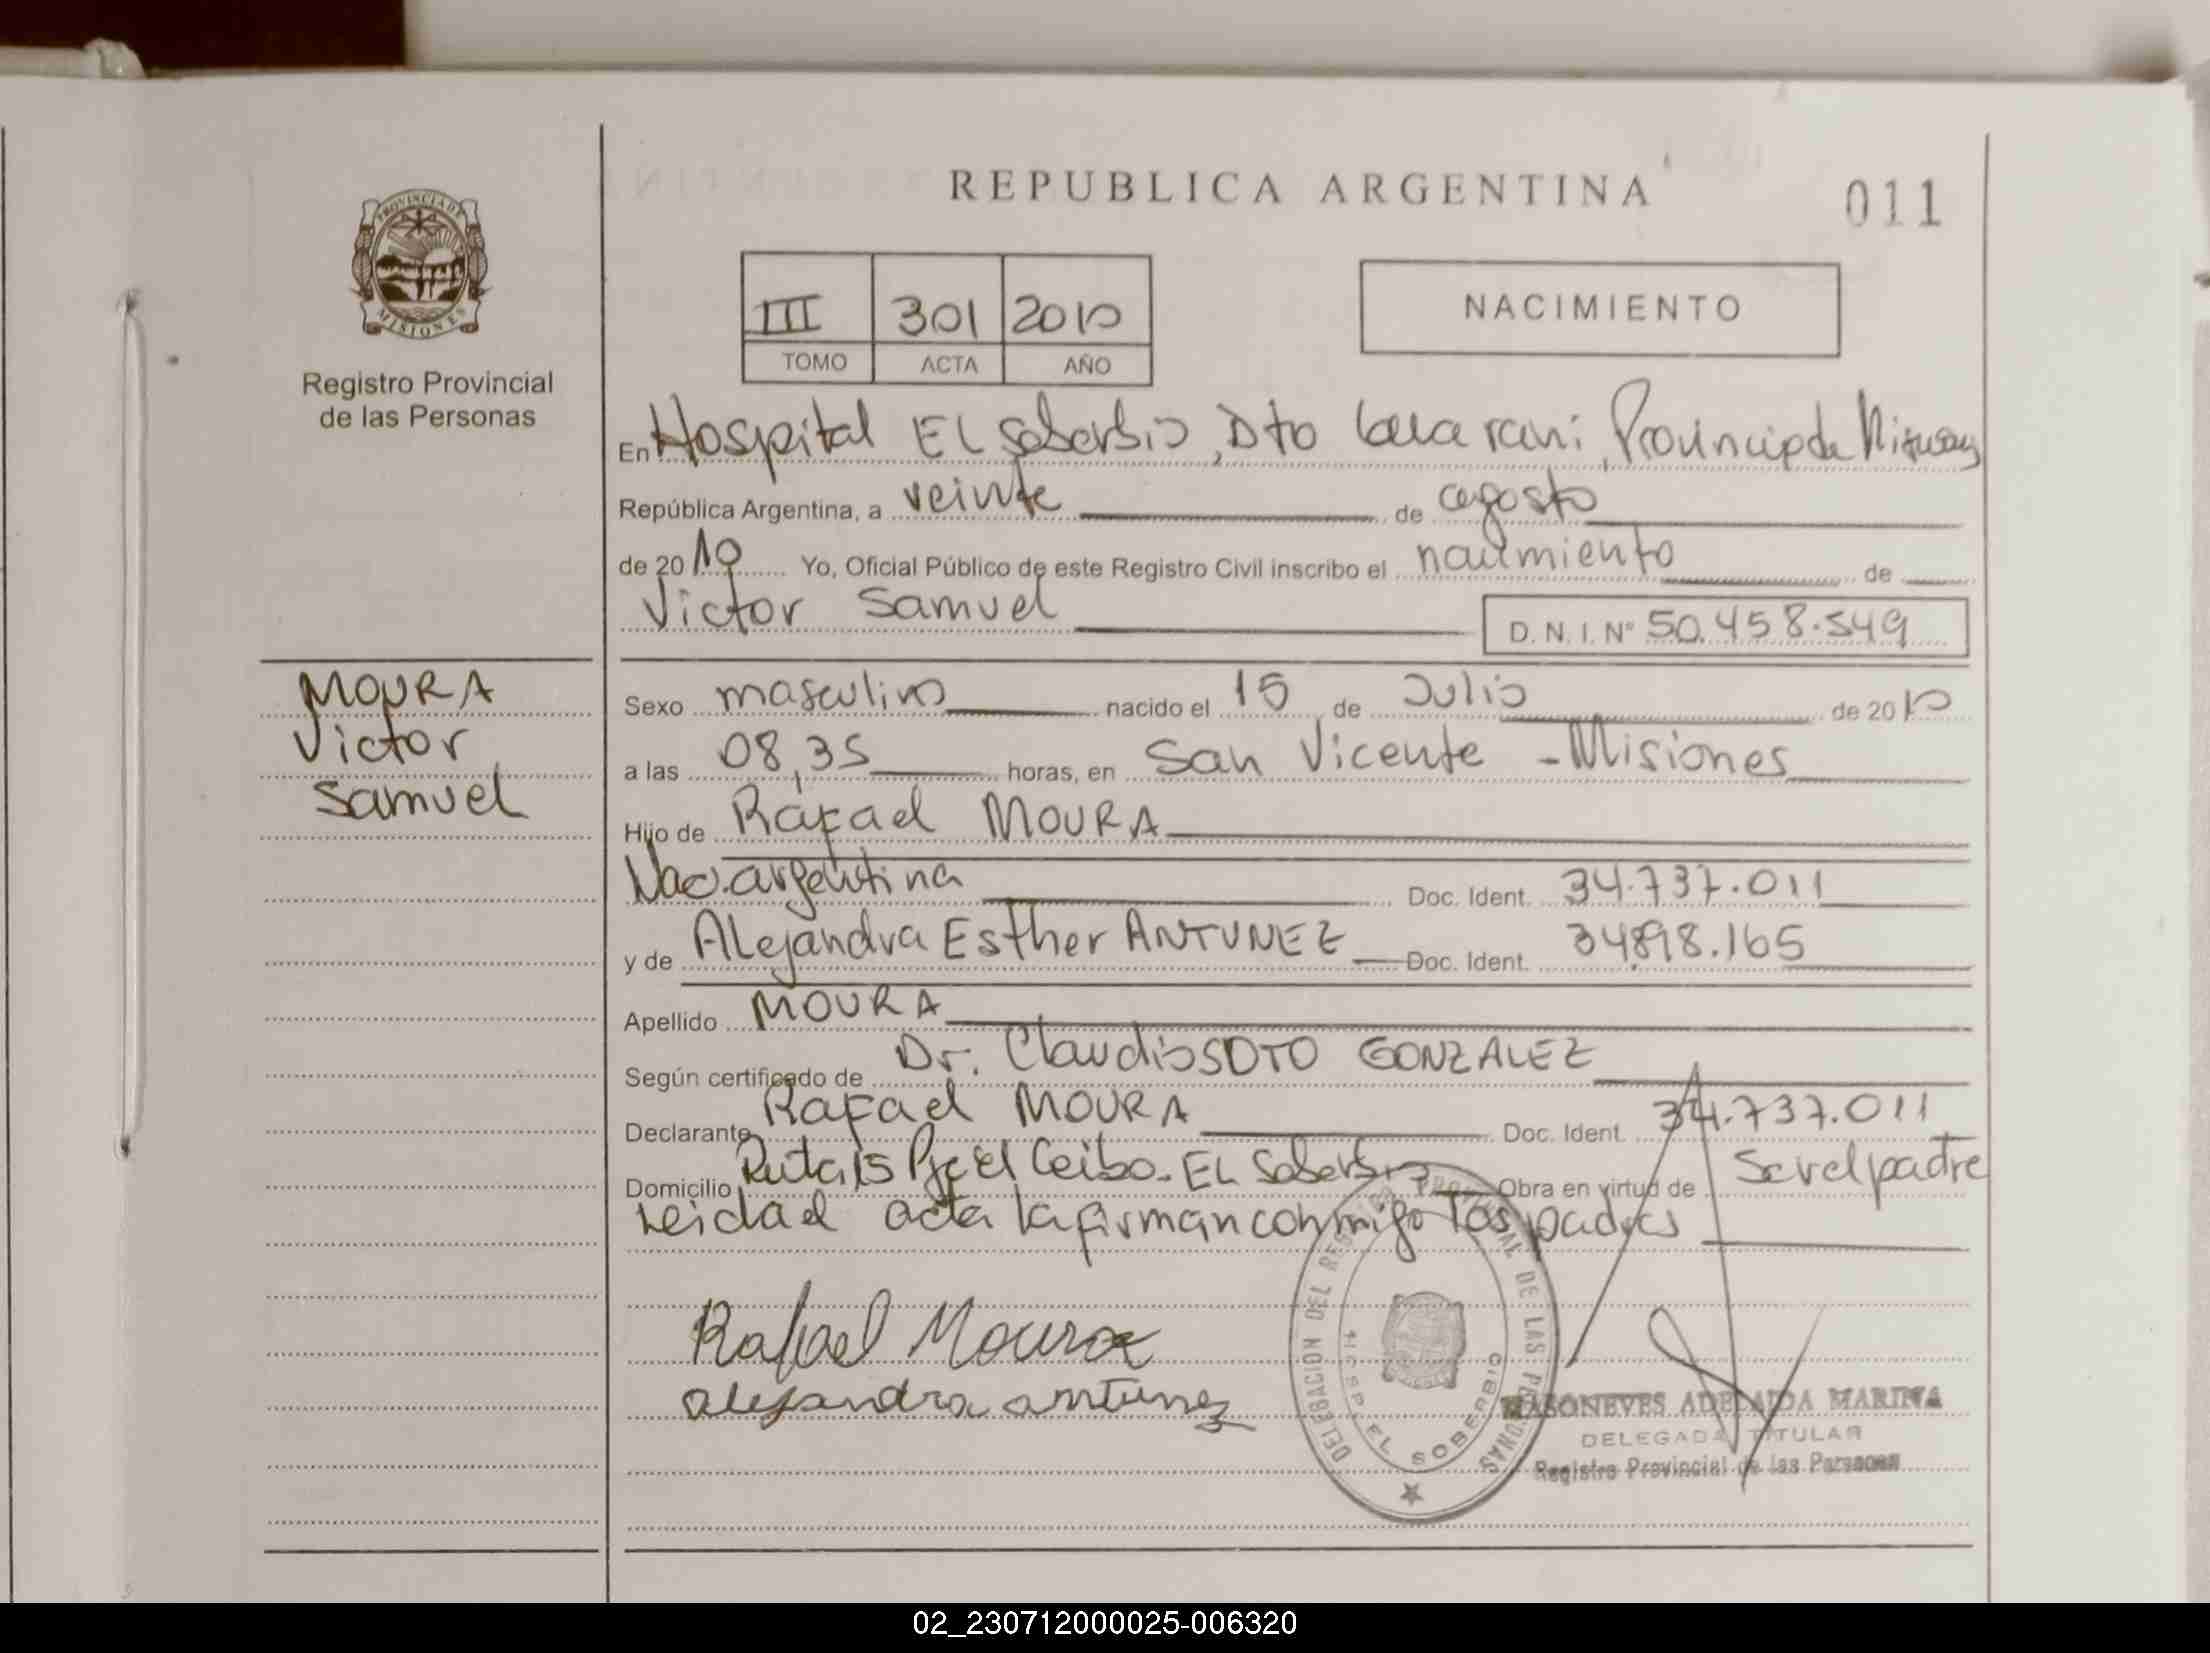 REPUBLICA ARGENTINA
011
PROVINCIA DE
MISIONES
Registro Provincial
de las Personas
III 301 2010
TOMO ACTA AÑO
NACIMIENTO
En Hospital EL Soberbio, Dto Guaraní, Provincia de Misiones
República Argentina, a veinte de agosto
de 2010 Yo, Oficial Público de este Registro Civil inscribo el nacimiento de
Victor Samuel D. N. I. Nº 50.458.549
MOURA
Victor
Samuel
Sexo masculino nacido el 15 de Julio de 2010
a las 08,35 horas, en San Vicente - Misiones
Hijo de Rafael MOURA
Nac. argentina Doc. Ident. 34.737.011
y de Alejandra Esther ANTUNEZ Doc. Ident. 34.898.165
Apellido MOURA
Según certificado de Dr. Claudio SOTO GONZALEZ
Declarante Rafael MOURA Doc. Ident. 34.737.011
Domicilio Ruta 15 Pje El Ceibo - EL Soberbio Obra en virtud de Ser el padre
Leida el acta la firman conmigo los padres
Rafael Moura
alejandra antunez
DELEGACION DEL REGISTRO PROVINCIAL DE LAS PERSONAS
HOSP. EL SOBERBIO
ADELAIDA MARINA
DELEGADA TITULAR
Registro Provincial de las Personas
02_230712000025-006320